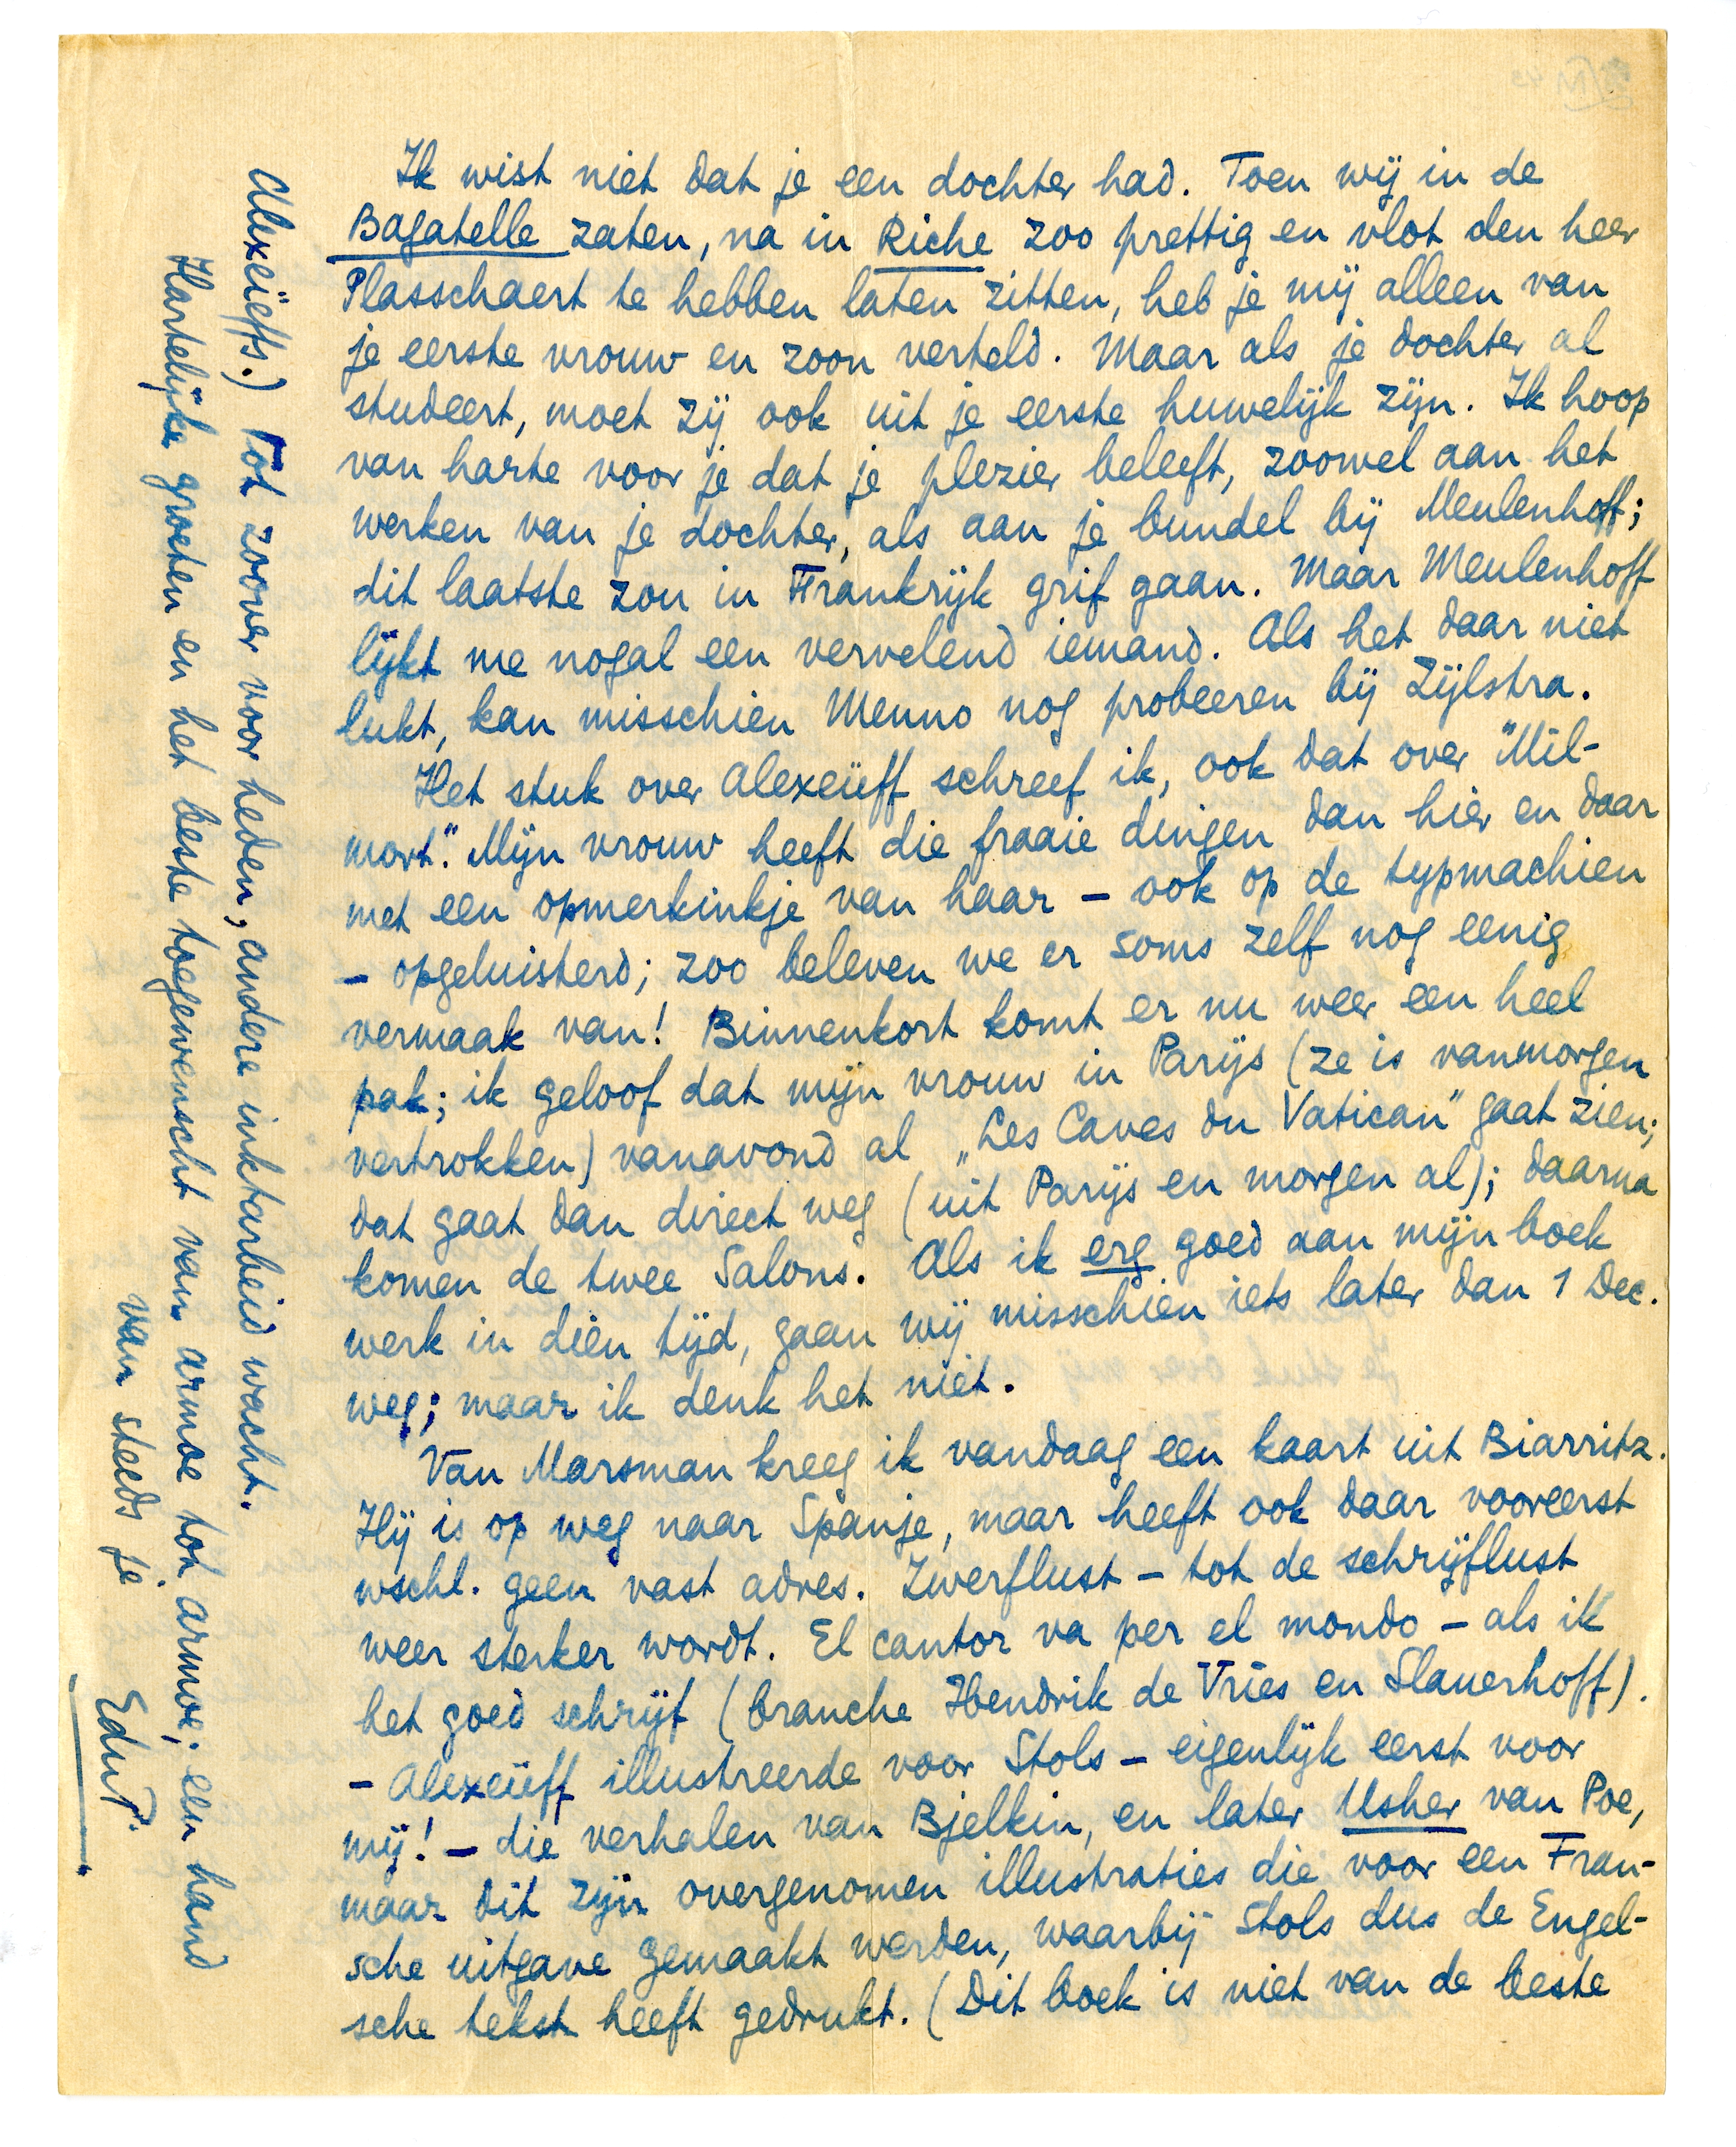 Ik wist niet dat je een dochter had. Toen wij in de
Bagatelle zaten, na in Riche zoo prettig en vlot den heer
Plasschaert te hebben laten zitten, heb je mij alleen van
je eerste vrouw en zoon verteld. Maar als je dochter al
studeert, moet zij ook uit je eerste huwelijk zijn. Ik hoop
van harte voor je dat je plezier beleeft, zoowel aan het
werken van je dochter, als aan je bundel bij Meulenhoff;
dit laatste zou in Frankrijk grif gaan. Maar Meulenhoff
lijkt me nogal een vervelend iemand. Als het daar niet
lukt, kan misschien Menno nog probeeren bij Zijlstra.
Het stuk over Alexeïeff schreef ik, ook dat over "Mil-
mort." Mijn vrouw heeft die fraaie dingen dan hier en daar
met een opmerkinkje van haar – ook op de typmachien
– opgeluisterd; zoo beleven we er soms zelf nog eenig
vermaak van! Binnenkort komt er nu weer een heel
pak; ik geloof dat mijn vrouw in Parijs (ze is vanmorgen
vertrokken) vanavond al „Les Caves du Vatican" gaat zien;
dat gaat dan direct weg (uit Parijs en morgen al); daarna
komen de twee Salons. Als ik erg goed aan mijn boek
werk in dien tijd, gaan wij misschien iets later dan 1 Dec.
weg; maar ik denk het niet.
Van Marsman kreeg ik vandaag een kaart uit Biarritz.
Hij is op weg naar Spanje, maar heeft ook daar vooreerst
wschl. geen vast adres. Zwerflust – tot de schrijflust
weer sterker wordt. El cantor va per el mondo – als ik
het goed schrijf (branche Hendrik de Vries en Slauerhoff).
– Alexeïeff illustreerde voor Stols – eigenlijk eerst voor
mij! – die verhalen van Bjelkin, en later Usher van Poe,
maar dit zijn overgenomen illustraties die voor een Fran-
sche uitgave gemaakt werden, waarbij Stols dus de Engel-
sche tekst heeft gedrukt. (Dit boek is niet van de beste
Alexeïeffs.) Tot zoover voor heden, andere inktarbeid wacht.
Hartelijke groeten en het beste toegewenscht van armoe tot armoe; een hand
van steeds je
EduP.